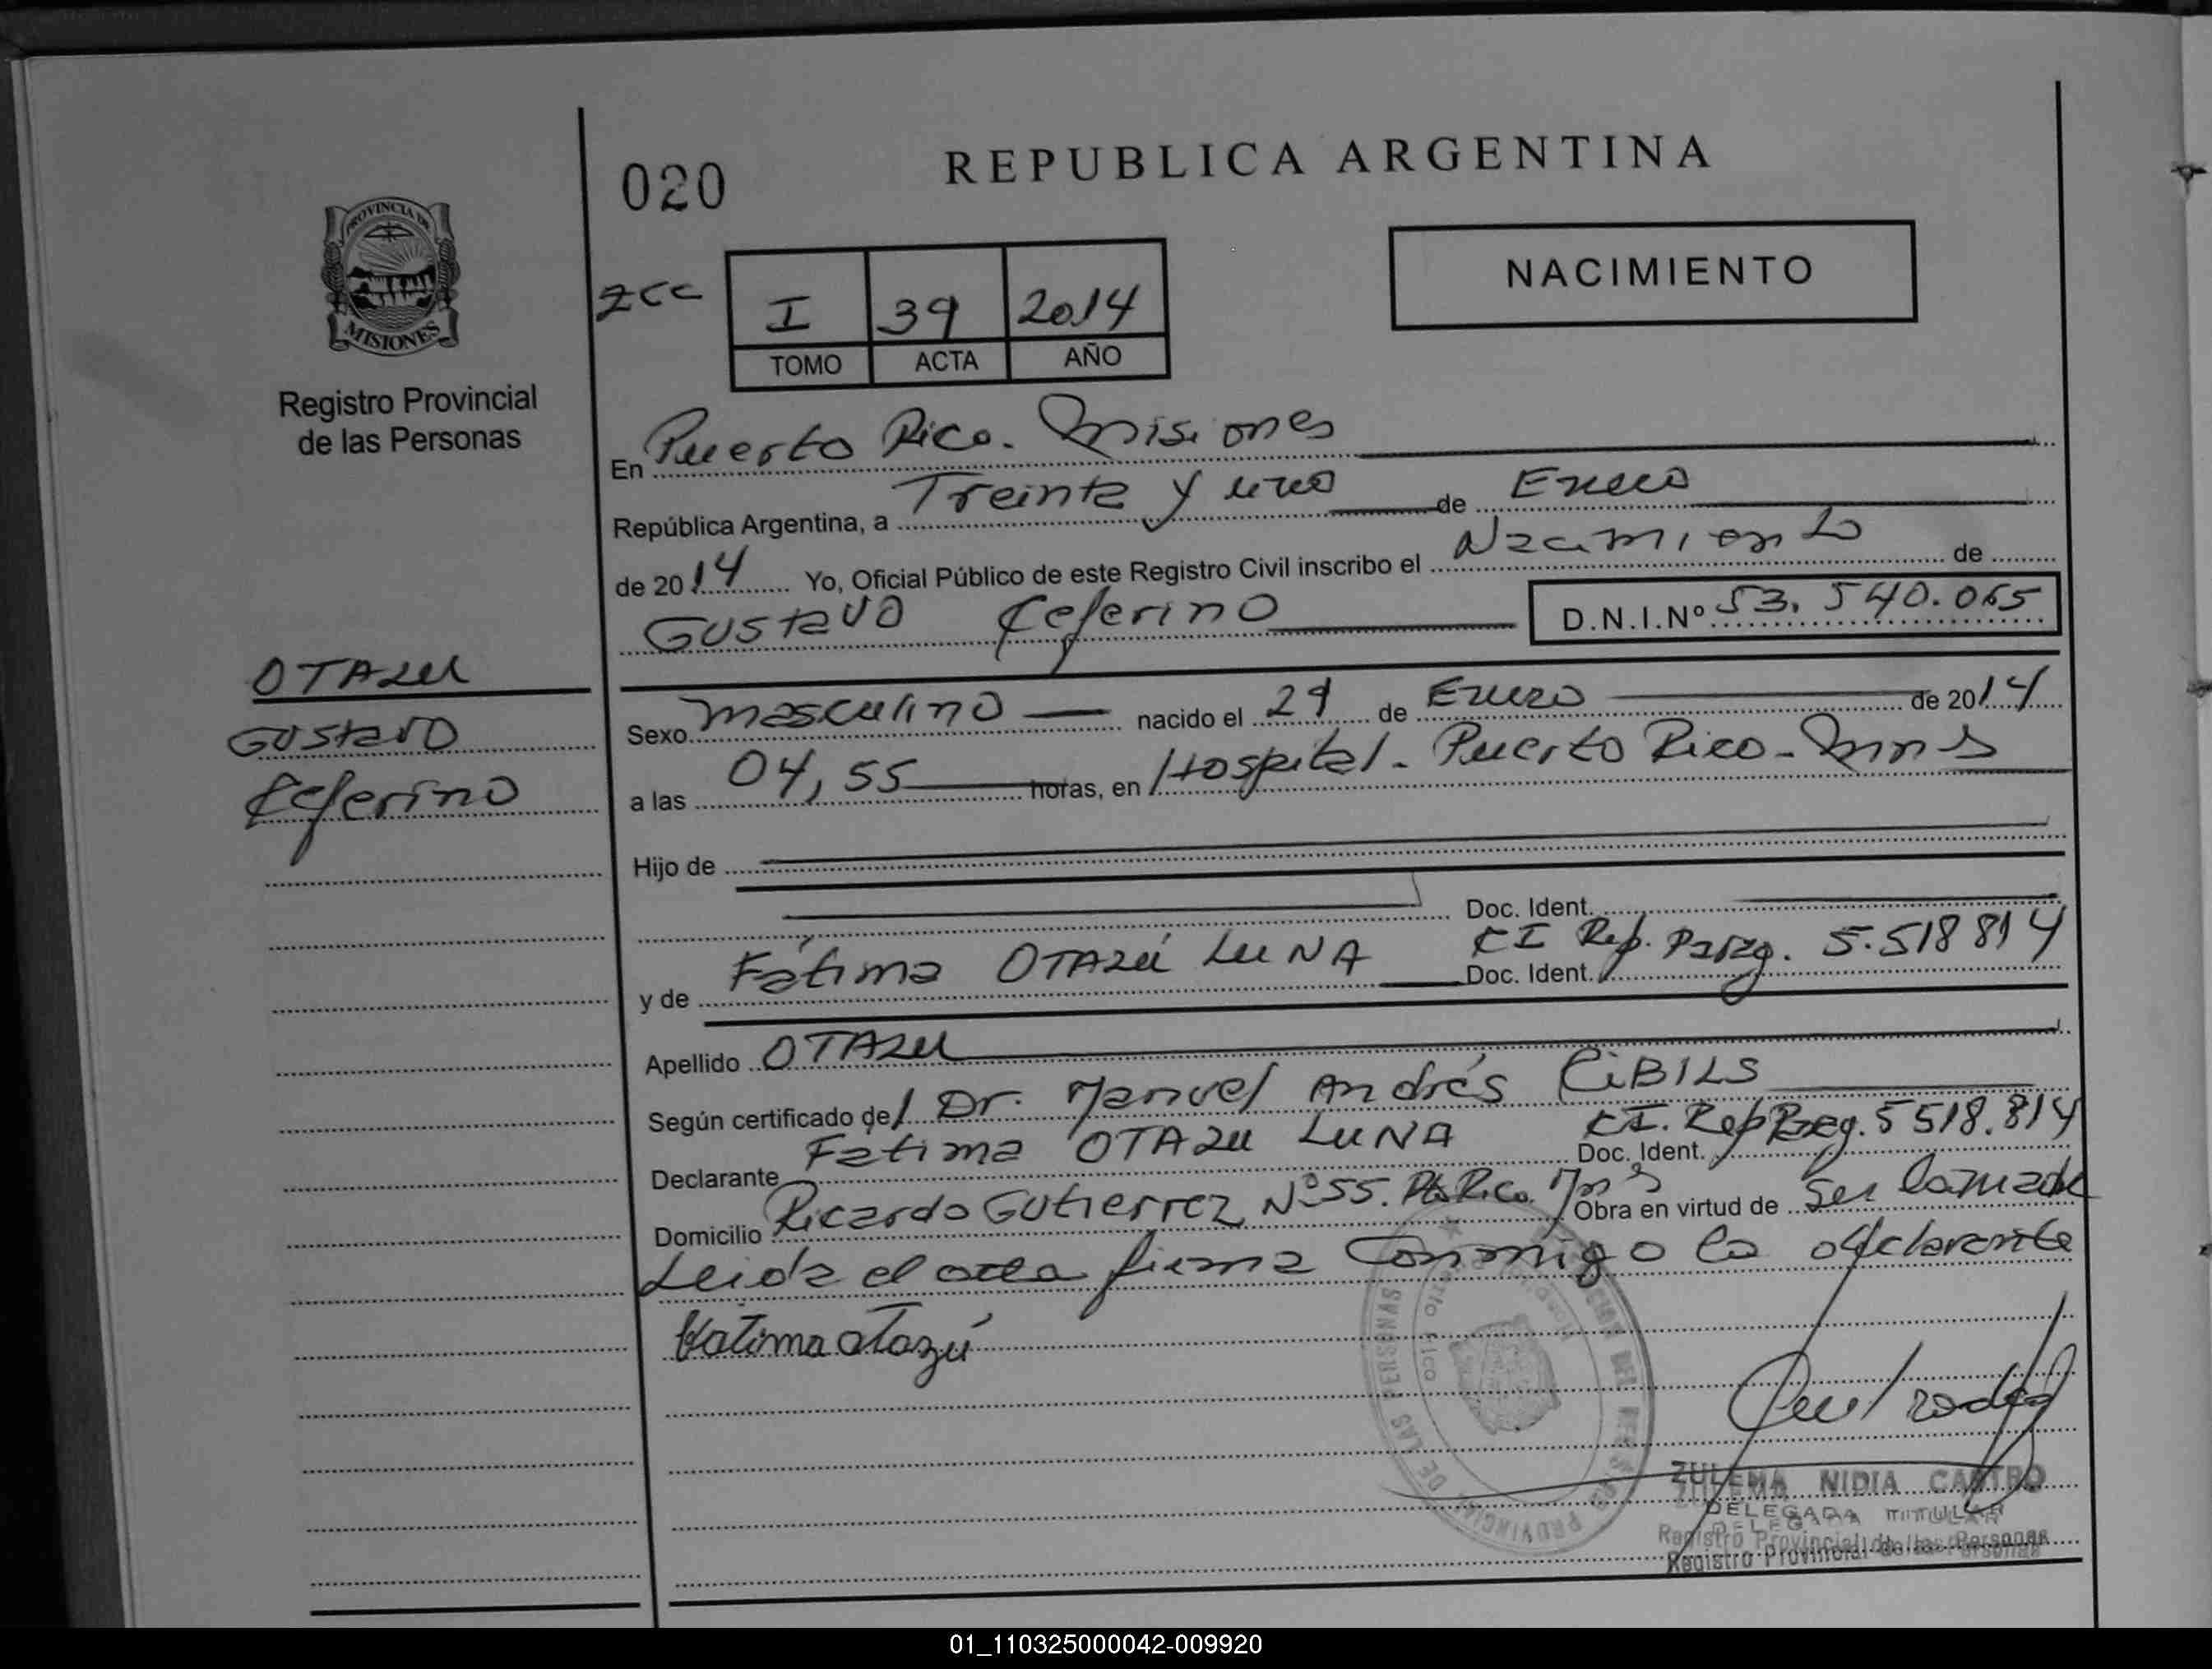 020
REPUBLICA ARGENTINA
PROVINCIA DE
MISIONES
Registro Provincial
de las Personas
zcc
I 39 2014
TOMO ACTA AÑO
NACIMIENTO
En Puerto Rico. Misiones
República Argentina, a Treinta y uno de Enero
de 2014 Yo, Oficial Público de este Registro Civil inscribo el Nacimiento de
Gustavo Ceferino D.N.I.Nº 53.540.065
OTAZU
Gustavo
Ceferino
Sexo masculino nacido el 29 de Enero de 2014
a las 04,55 horas, en Hospital - Puerto Rico - Mns
Hijo de
Doc. Ident.
y de Fátima OTAZÚ LUNA Doc. Ident. CI Rep. Parag. 5.518814
Apellido OTAZU
Según certificado del Dr. Manuel Andrés CIBILS
Declarante Fatima OTAZU LUNA Doc. Ident. CI. Rep Parg. 5518.814
Domicilio Ricardo Gutierrez Nº 55. Pto Rico Mns Obra en virtud de Ser la madre
Leida el acta firma conmigo la declarante
Fatima Otazú
ZULEMA NIDIA CASTRO
DELEGADA TITULAR
Registro Provincial de las Personas
01_110325000042-009920